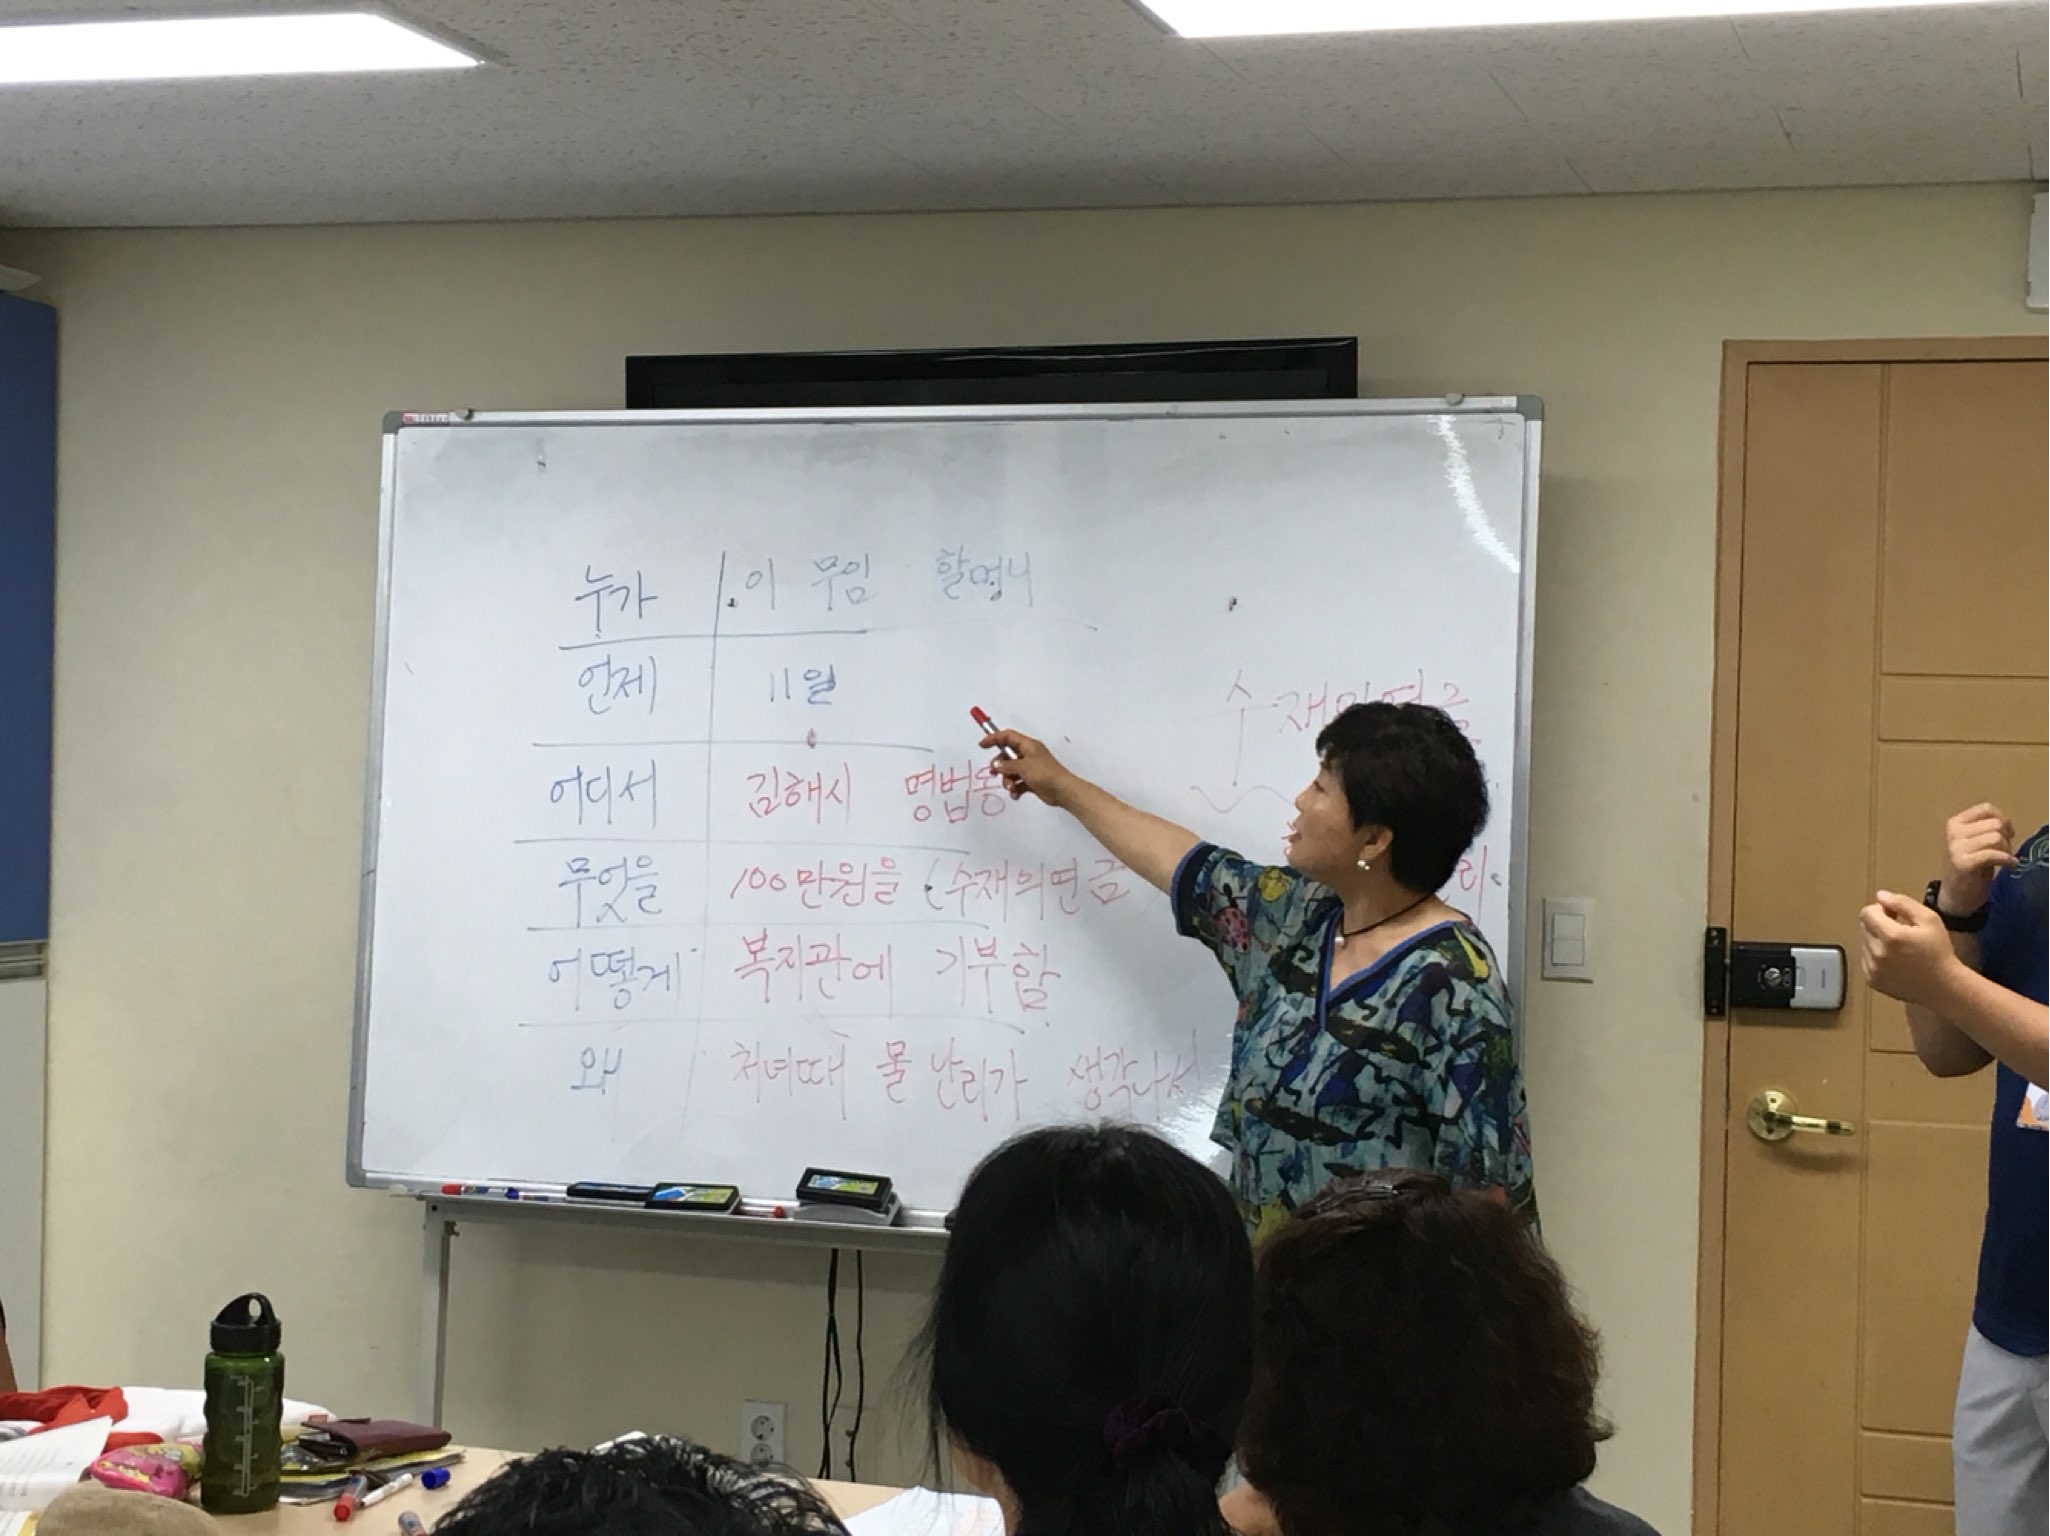 누가 이 무임 할머니
언제 11월
어디서 김해시 명법동
무엇을 100만원을 (수재의연금
어떻게 복지관에 기부함
왜 처녀때 물난리가 생각나서
수재의연금